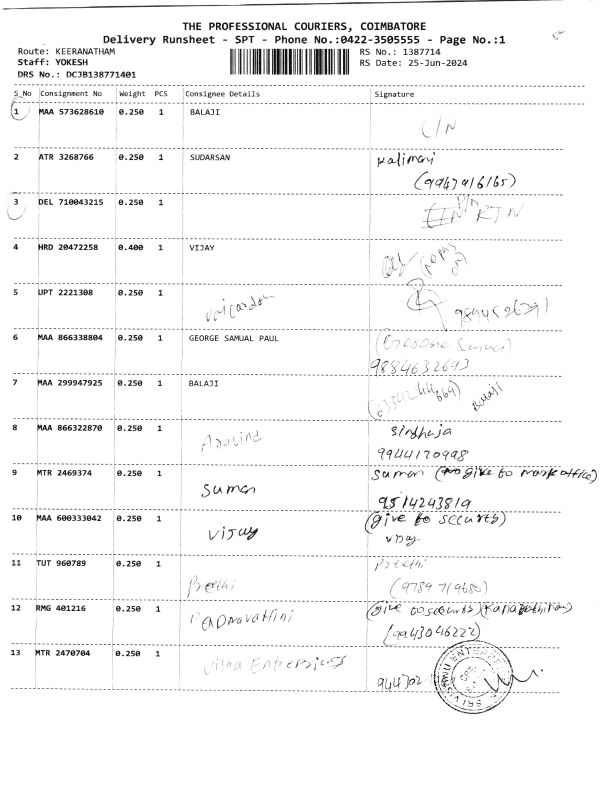 THE PROFESSIONAL COURIERS, COIMBATORE
Delivery Runsheet - SPT - Phone No.:0422-3505555 - Page No.:1
Route: KEERANATHAM RS No.: 1387714
Staff: YOKESH RS Date: 25-Jun-2024
DRS No.: DCJB138771401
S_No Consignment No Weight PCS Consignee Details Signature
1 MAA 573628610 0.250 1 BALAJI
C/N
2 ATR 3268766 0.250 1 SUDARSAN Kalimani
(9947916165)
3 DEL 710043215 0.250 1
RTN
4 HRD 20472258 0.400 1 VIJAY
5 UPT 2221308 0.250 1
6 MAA 866338804 0.250 1 GEORGE SAMUAL PAUL
9884632693
7 MAA 299947925 0.250 1 BALAJI
Balaji
8 MAA 866322870 0.250 1 Sindhuja
9944170998
9 MTR 2469374 0.250 1 Suman (give to office)
Suman 9514243819
10 MAA 600333042 0.250 1 (give to security)
Vijay Vijay
11 TUT 960789 0.250 1 Preethi
Preethi (9789719680)
12 RMG 401216 0.250 1 (give to security)
Padmavathini (9943046222)
13 MTR 2470704 0.250 1
944702
SRI VISHNU ENTERPRISES